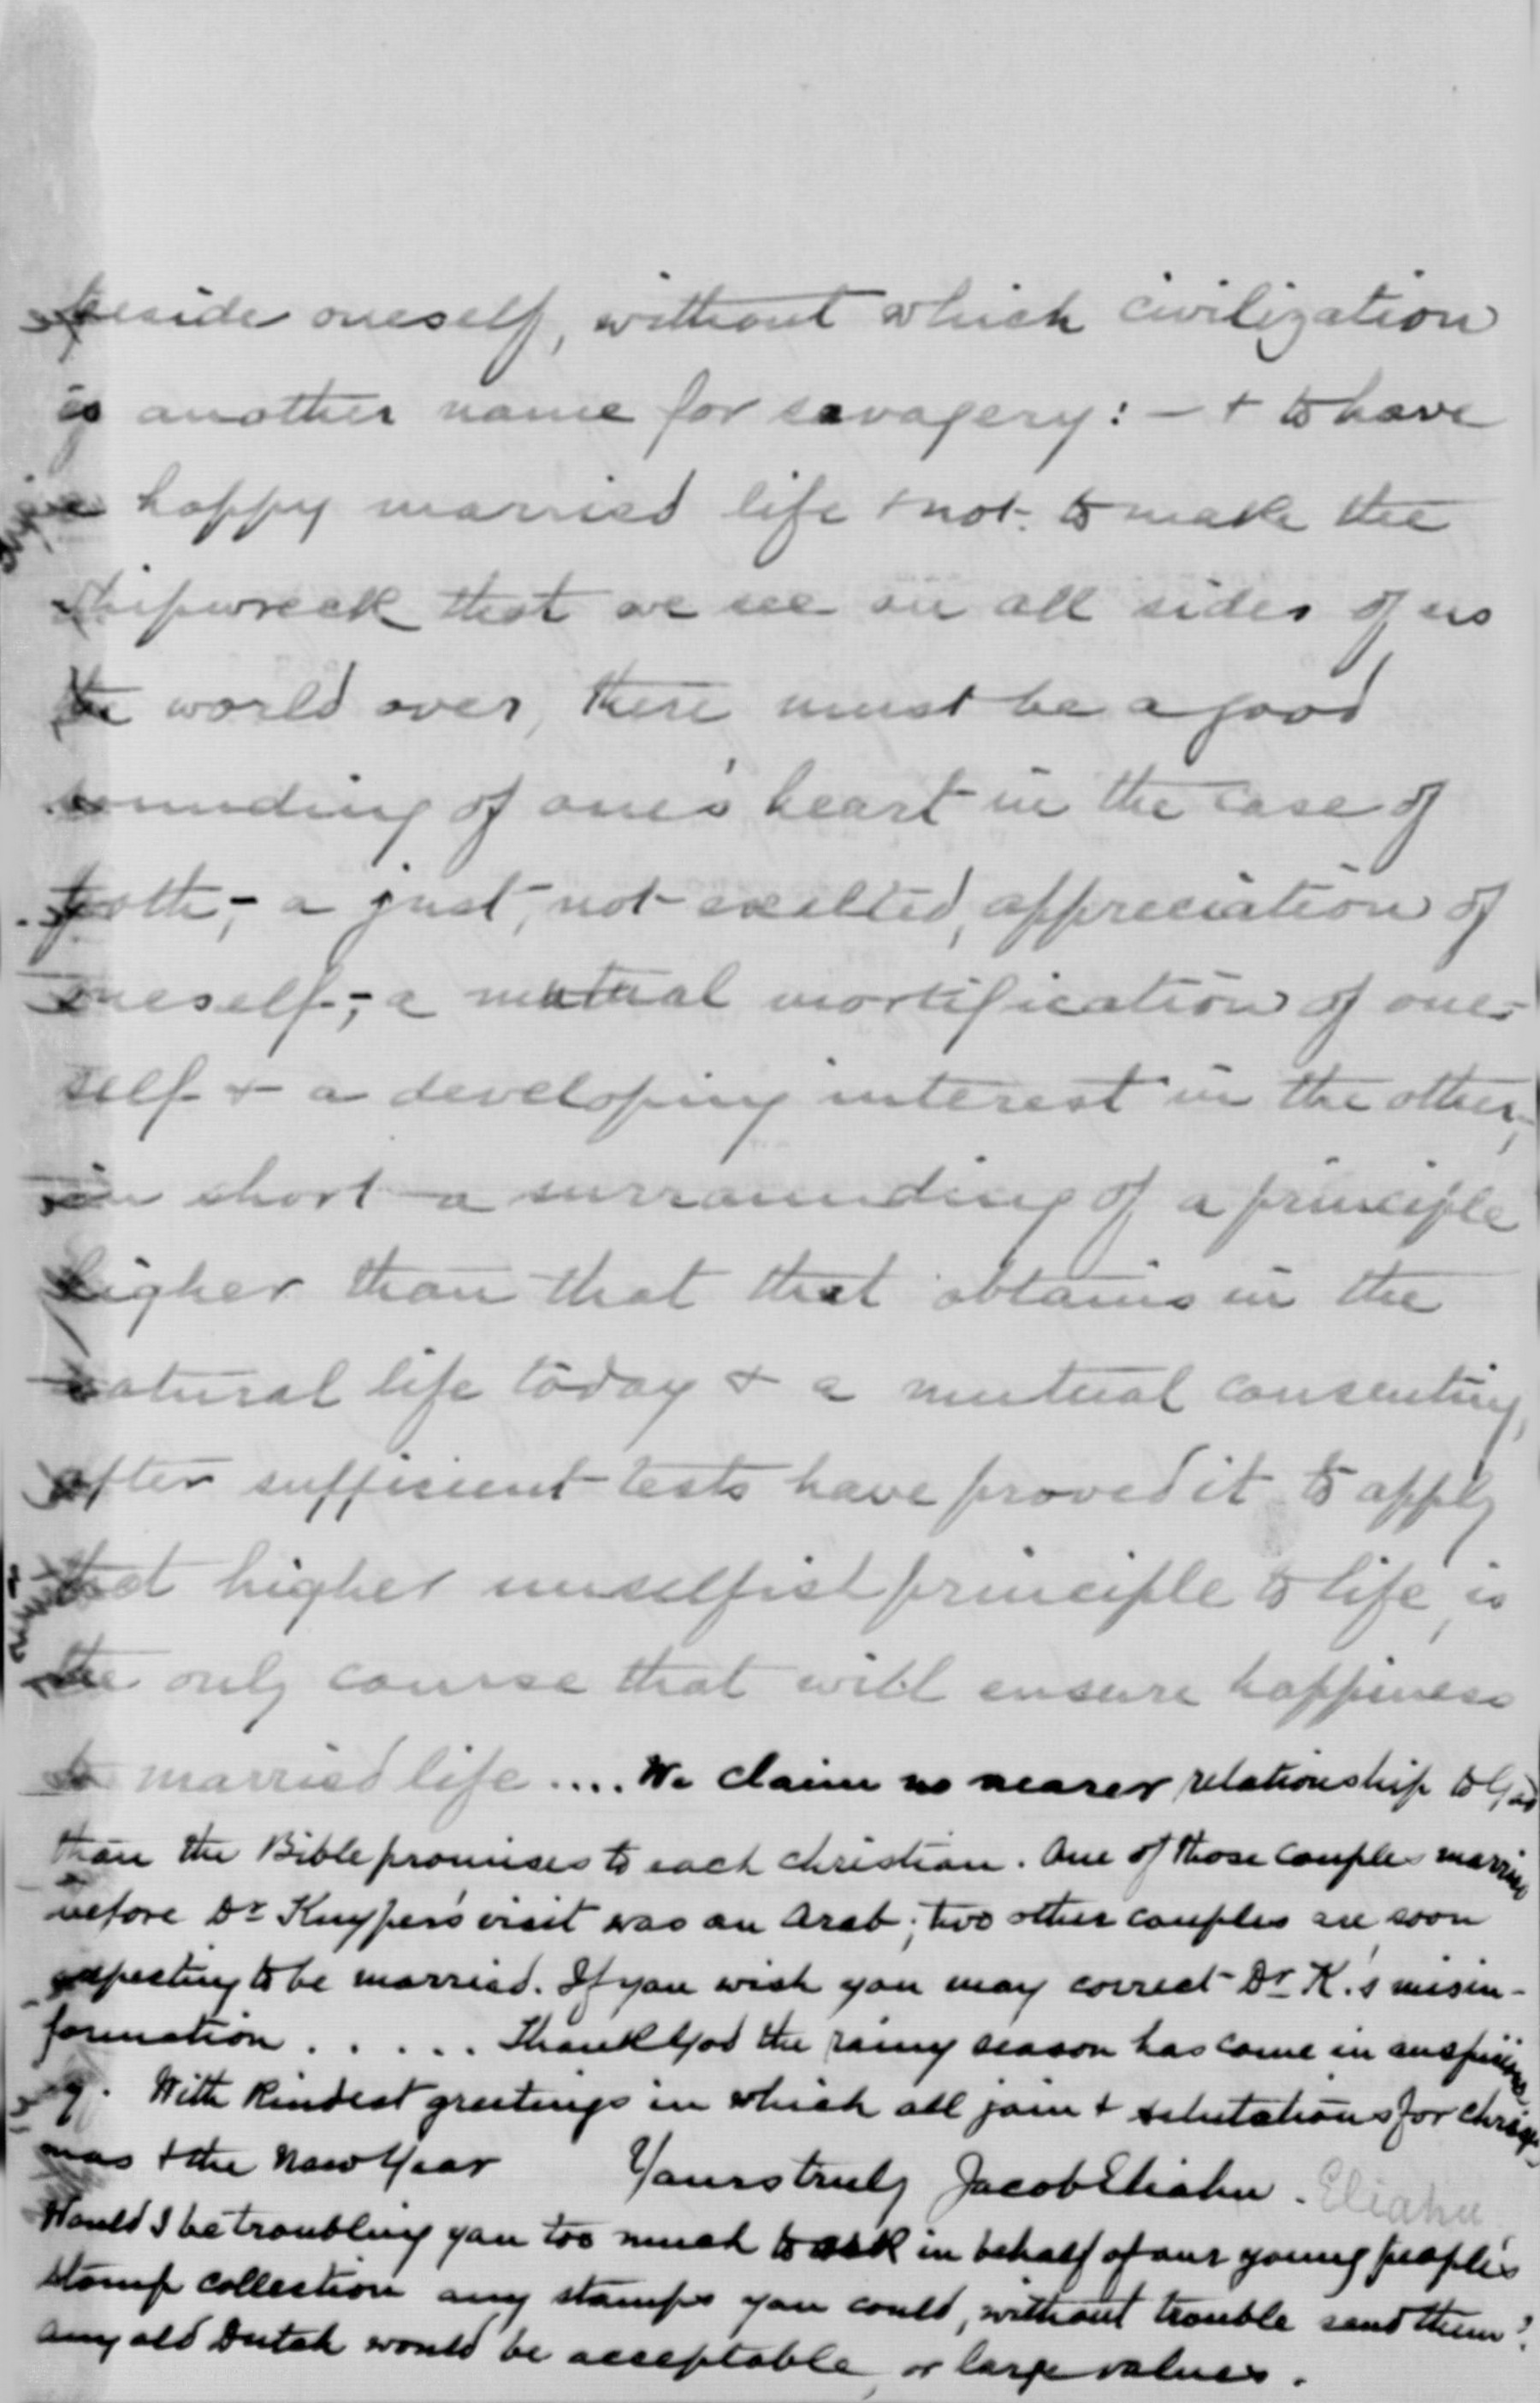 beside oneself, without which civilization
is another name for savagery: – + to have
a happy married life + not to make the
shipwreck that we see on all sides of us
the world over, there must be a good
sounding of one's heart in the case of
both; – a just, not exalted, appreciation of
oneself; – a mutual mortification of one-
self + a developing interest in the other,
in short a surrounding of a principle
higher than that that obtains in the
natural life today + a mutual consenting,
after sufficient tests have proved it to apply
that higher unselfish principle to life, is
the only course that will ensure happiness
to married life .... We claim no nearer relationship to God
than the Bible promises to each christian. One of those couples married
before Dr Kuyper's visit was an Arab; two other couples are soon
expecting to be married. If you wish you may correct Dr K.'s misin-
formation ..... Thank God the rainy season has come in
With kindest greetings in which all join + salutations for Christ-
mas + the New Year Yours truly Jacob Eliahu. Eliahu
Would I be troubling you too much to ask in behalf of our young people's
stamp collection any stamps you could, without trouble send them?
Any old Dutch would be acceptable, or large values.